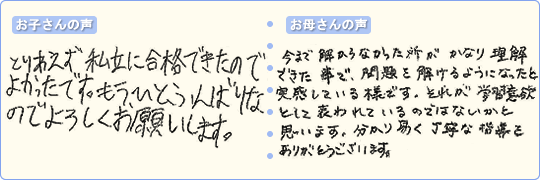 お子さんの声
とりあえず私立に合格できたので
よかったです。もうひとふんばりな
のでよろしくお願いします。
お母さんの声
今まで解からなかった所が かなり理解
できた事で、問題を解けるようになったと
実感している様です。それが学習意欲
として表われているのではないかと
思います。分かり易く丁寧な指導を
ありがとうございます。